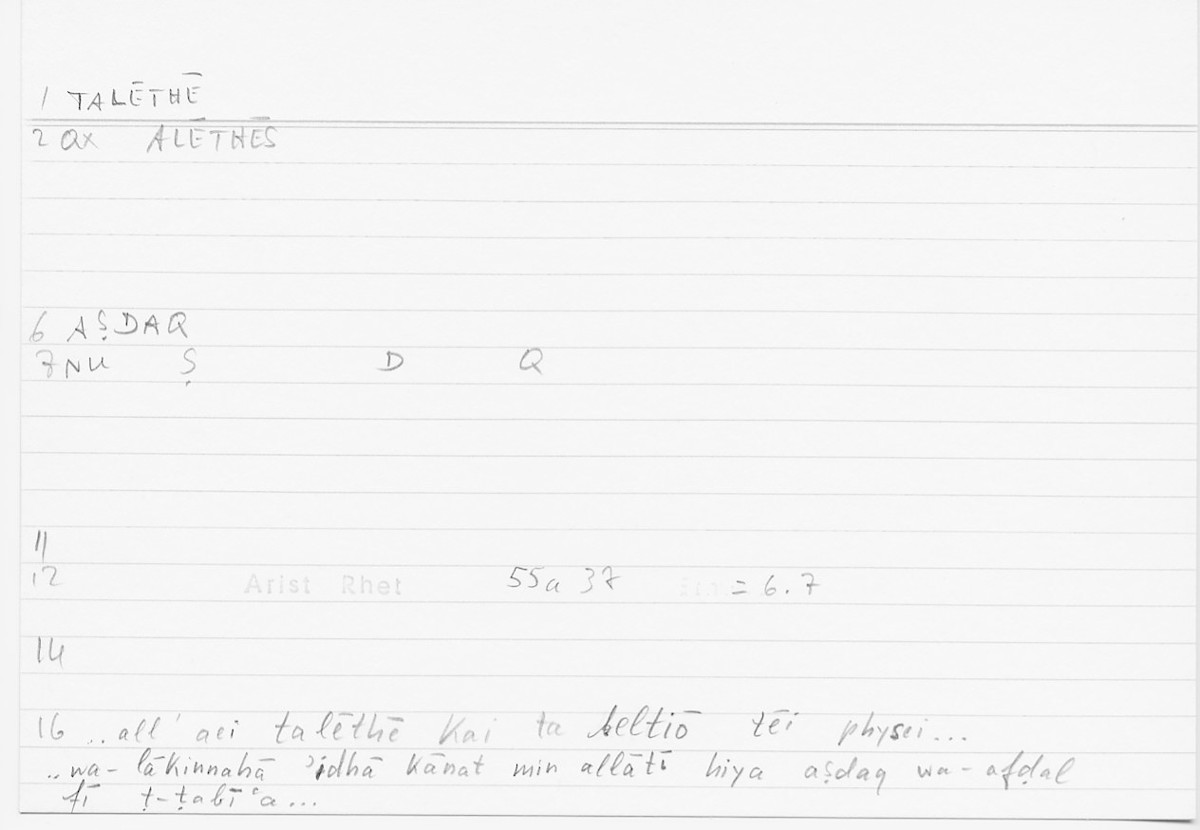 1 TALĒTHĒ
2 ax ALĒTHĒS
6 AṢDAQ
7 NU Ṣ D Q
11
12 Arist Rhet 55a 37 = 6.7
14
16 ..all' aei talēthē kai ta beltiō tēi physei...
..wa-lākinnahā ʾidhā kānat min allātī hiya aṣdaq wa-afḍal
fī ṭ-ṭabīʿa...